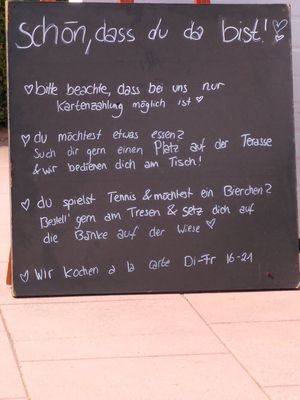 schön, dass du da bist! ♡
♡ bitte beachte, dass bei uns nur
Kartenzahlung möglich ist ♡
♡ du möchtest etwas essen?
Such dir gern einen Platz auf der Terasse
& wir bedienen dich am Tisch!
♡ du spielst Tennis & möchtest ein Bierchen?
Bestell' gern am Tresen & setz dich auf
die Bänke auf der Wiese ♡
♡ Wir kochen a la carte Di-Fr 16-21